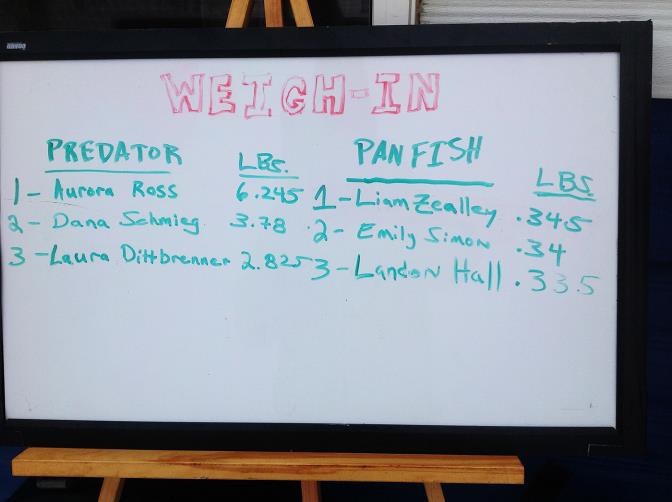 WEIGH-IN
PREDATOR LBS.
1 - Aurora Ross 6.245
2 - Dana Schmieg 3.78
3 - Laura Dittbrenner 2.825
PAN FISH LBS
1 - Liam Zealley .345
2 - Emily Simon .34
3 - Landon Hall .335